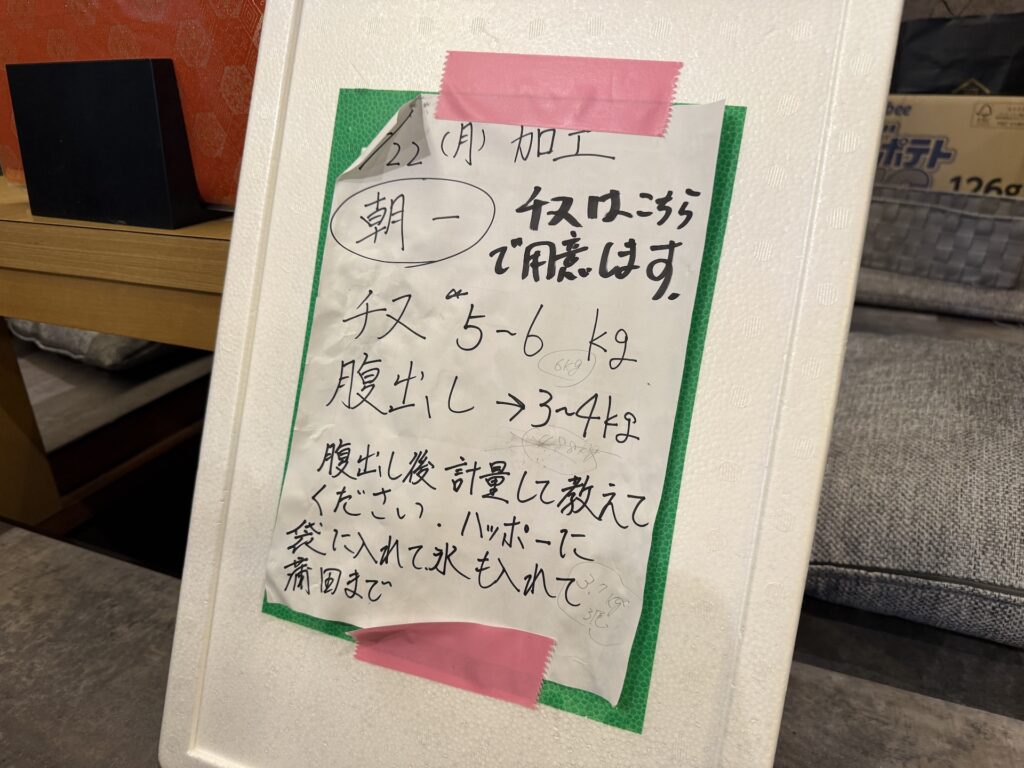 22(月) 加工
朝一
チヌはこちら
で用意します.
チヌ 5~6 kg
6kg
腹出し → 3~4kg
腹出し後 計量して教えて
ください. ハッポーに
袋に入れて氷も入れて
蒲田まで
3.7kg
bee
ポテト
126g